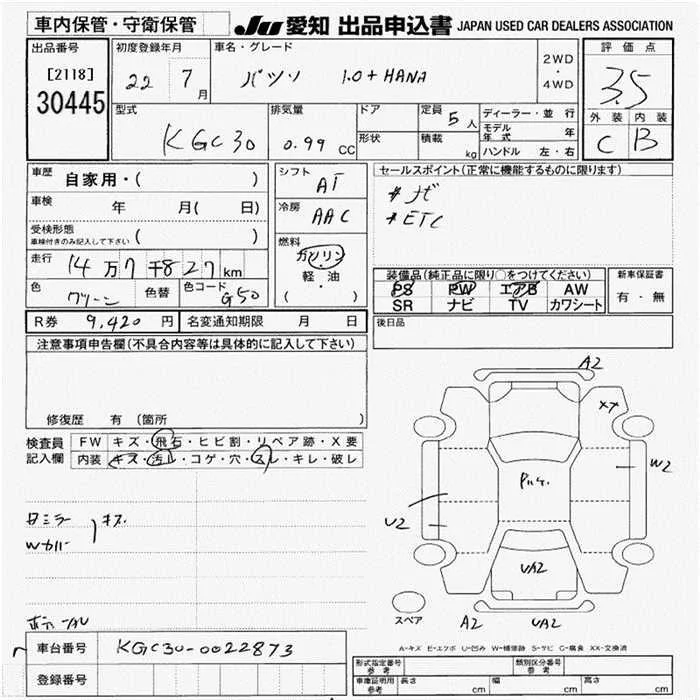 車内保管・守衛保管
JU 愛知 出品申込書 JAPAN USED CAR DEALERS ASSOCIATION
出品番号
[2118]
30445
初度登録年月
22 7月
車名・グレード
パッソ 1.0+HANA
2WD
・
4WD
評価点
3.5
外装 内装
C B
型式
KGC30
排気量
0.99 CC
ドア
形状
定員 5人
積載 kg
ディーラー・並行
モデル年式 年
ハンドル 左・右
車歴 自家用・( )
車検 年 月( 日)
受検形態
車検付きのみ記入して下さい ( )
走行 14万7千827km
色 グリーン 色替 色コード G50
シフト AT
冷房 AAC
燃料
ガソリン
軽・油
( )
セールスポイント(正常に機能するものに限ります)
＃ナビ
＃ETC
装備品(純正品に限り○をつけてください)
PS PW エアB AW
SR ナビ TV カワシート
新車保証書
有・無
R券 9,420円 名変通知期限 月 日
後日品
注意事項申告欄(不具合内容等は具体的に記入して下さい)
修復歴 有 (箇所 )
検査員記入欄
FW キズ・飛石・ヒビ割・リペア跡・X要
内装 キズ・汚レ・コゲ・穴・スレ・キレ・破レ
キズ
Wカバー
A2
XX
W2
U2
UA2
A2 UA2
スペア
A-キズ E-エクボ U-凹み W-補修跡 S-サビ C-腐食 XX-交換済
車台番号 KGC30-0022873
登録番号
形式指定番号 参考
類別区分番号 参考
車庫証明用 参考 長さ cm 幅 cm 高さ cm